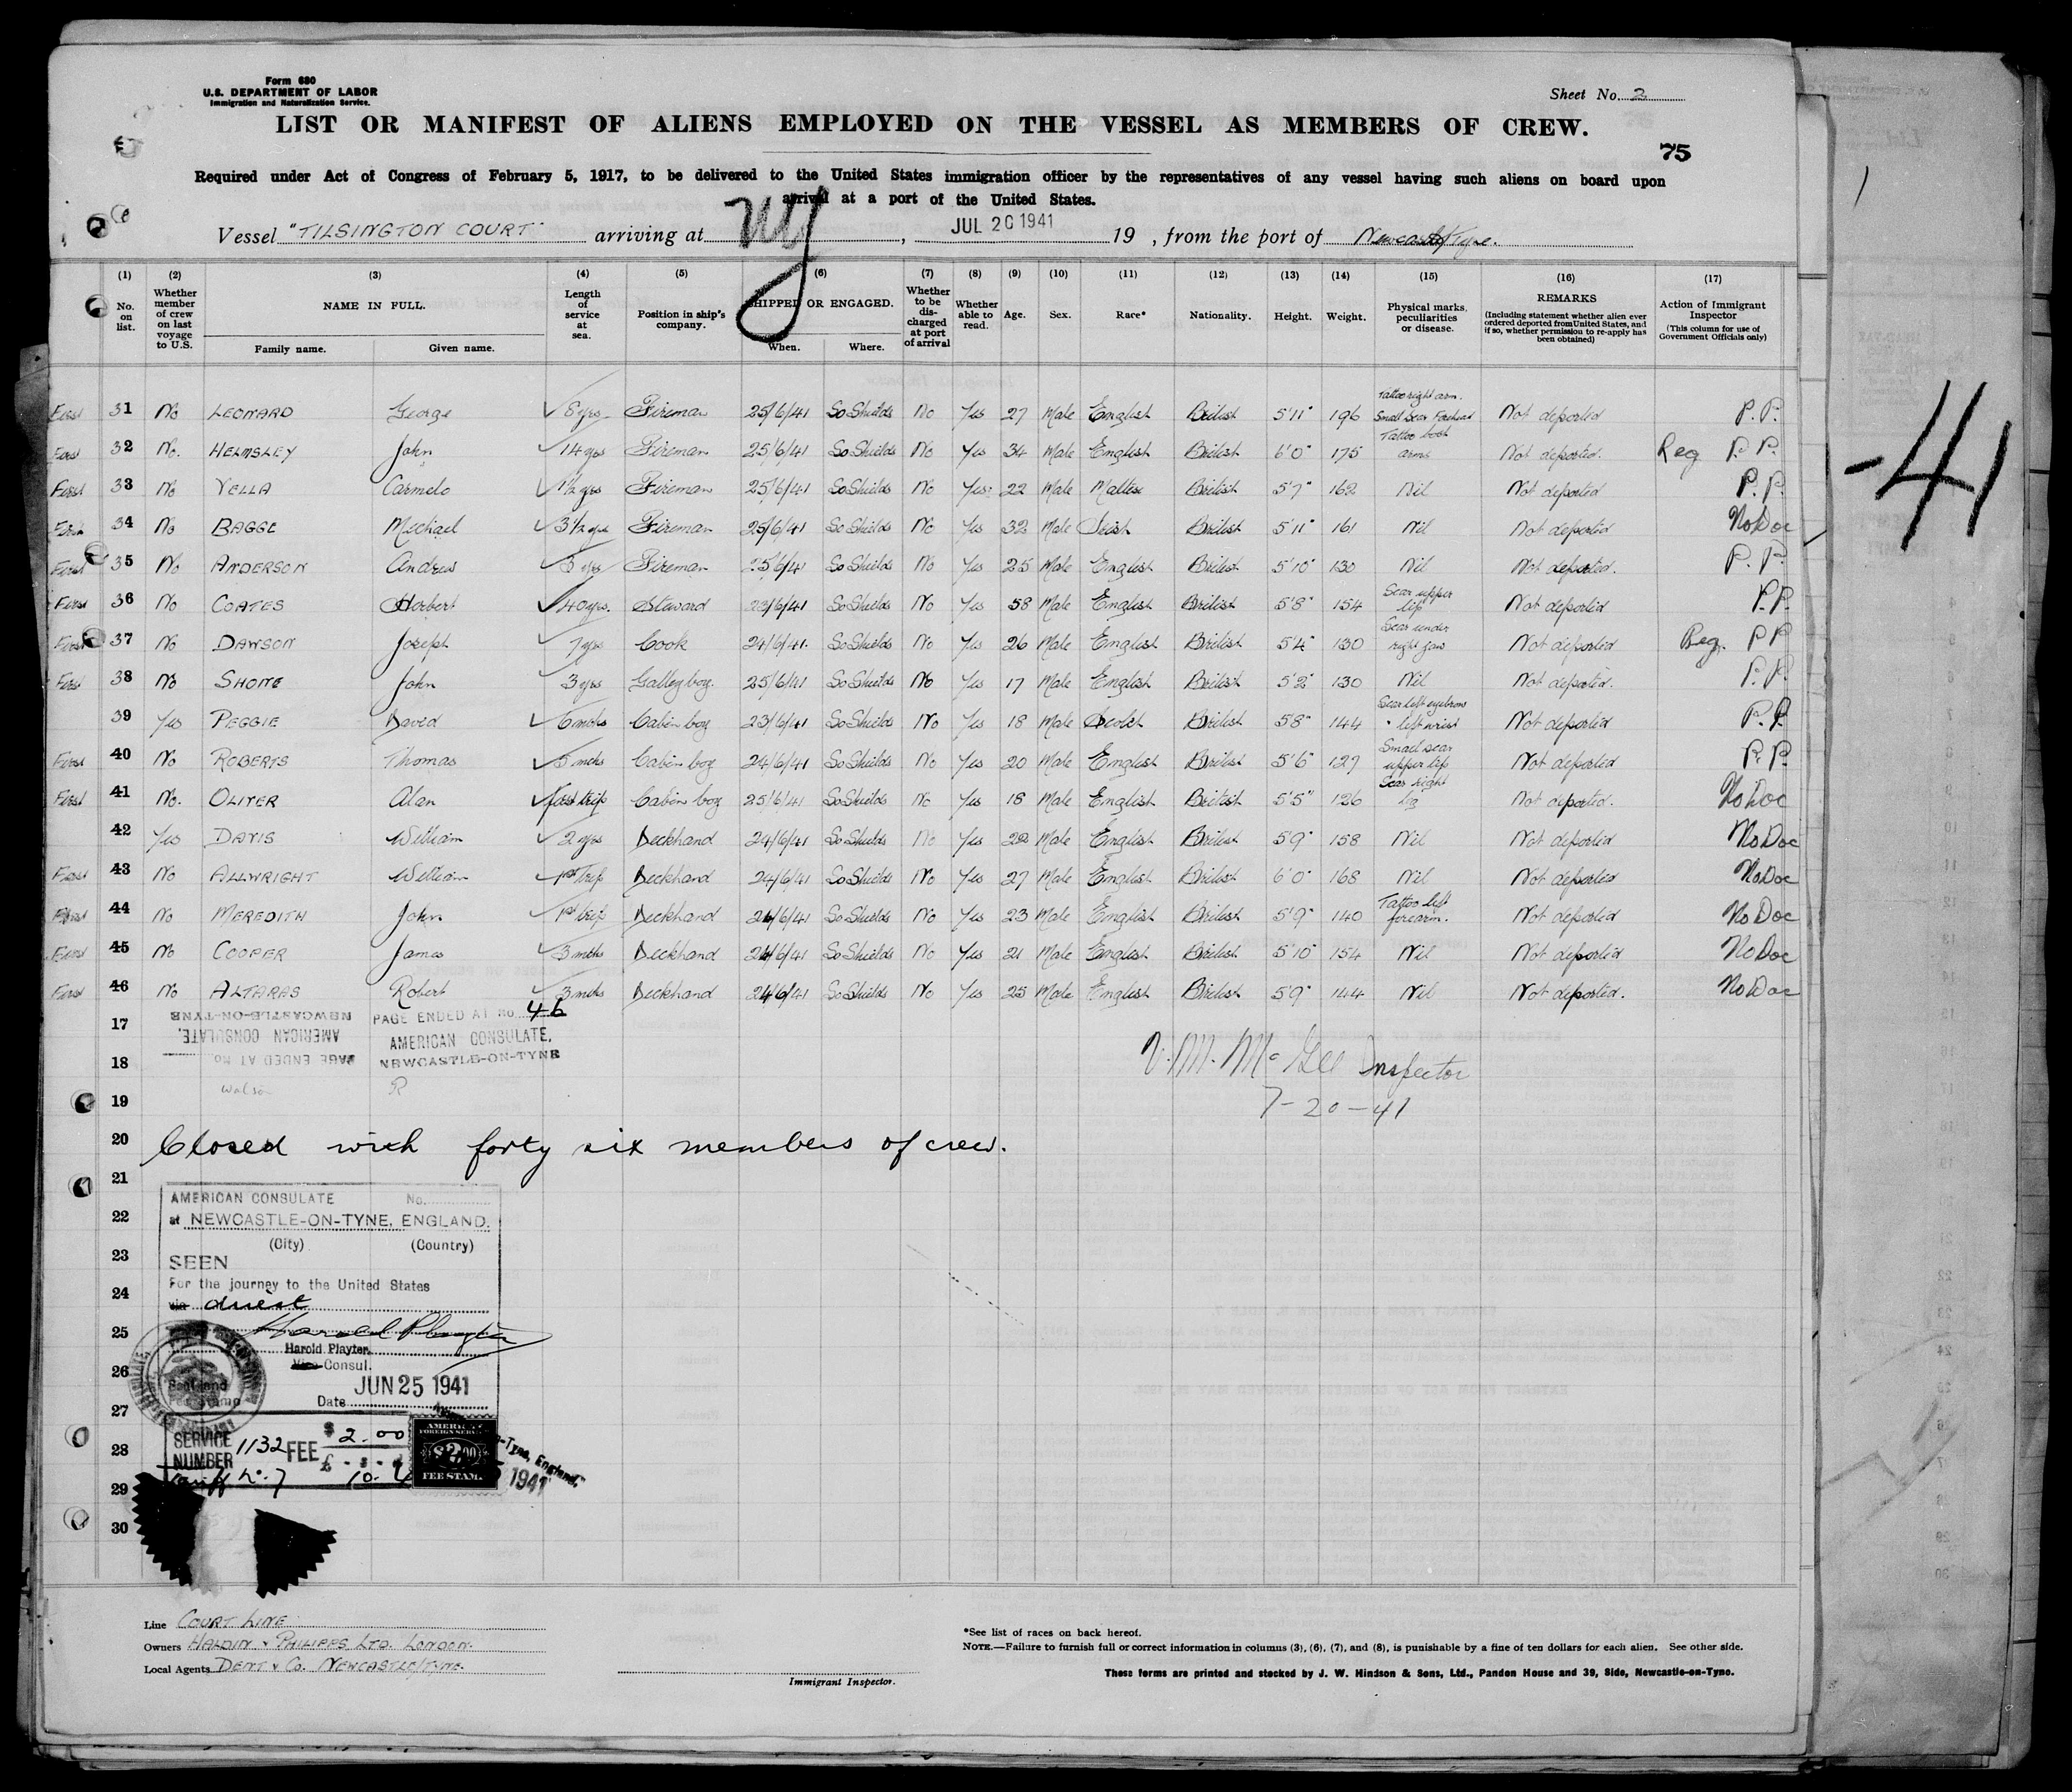 Form 680
U.S. DEPARTMENT OF LABOR
Immigration and Naturalization Service.
Sheet No. 2
LIST OR MANIFEST OF ALIENS EMPLOYED ON THE VESSEL AS MEMBERS OF CREW.
75
Required under Act of Congress of February 5, 1917, to be delivered to the United States immigration officer by the representatives of any vessel having such aliens on board upon
arrival at a port of the United States.
Vessel "TILSINGTON COURT" arriving at NY, JUL 20 1941 19 , from the port of Newcastle/Tyne.
(1) (2) (3) (4) (5) (6) (7) (8) (9) (10) (11) (12) (13) (14) (15) (16) (17)
No. on list. Whether member of crew on last voyage to U.S. NAME IN FULL. Family name. Given name. Length of service at sea. Position in ship's company. SHIPPED OR ENGAGED. When. Where. Whether to be discharged at port of arrival Whether able to read. Age. Sex. Race* Nationality. Height. Weight. Physical marks, peculiarities or disease. REMARKS (Including statement whether alien ever ordered deported from United States, and if so, whether permission to re-apply has been obtained) Action of Immigrant Inspector (This column for use of Government Officials only)
First 31 No LEONARD George 8 yrs Fireman 25/6/41 So Shields No Yes 27 Male English British 5'11" 196 Tattoo right arm. Small Scar Forehead Not deported P.P.
First 32 No. HELMSLEY John 14 yrs Fireman 25/6/41 So Shields No Yes 34 Male English British 6'0" 175 Tattoo both arms Not deported. Reg P.P.
First 33 No VELLA Carmelo 1½ yrs Fireman 25/6/41 So Shields No Yes 22 Male Maltese British 5'7" 162 Nil Not deported P.P.
First 34 No BAGGE Michael 3½ yrs Fireman 25/6/41 So Shields No Yes 32 Male Irish British 5'11" 161 Nil Not deported No Doc
First 35 No ANDERSON Andrew 5 yrs Fireman 25/6/41 So Shields No Yes 25 Male English British 5'10" 130 Nil Not deported. P.P.
First 36 No COATES Herbert 40 yrs. Steward 23/6/41 So Shields No Yes 58 Male English British 5'8" 154 Scar upper lip Not deported P.P.
First 37 No DAWSON Joseph 7 yrs Cook 24/6/41 So Shields No Yes 26 Male English British 5'4" 130 Scar under right jaw Not deported Reg. PP
First 38 No SHONE John 3 yrs Galley boy. 25/6/41 So Shields No Yes 17 Male English British 5'2" 130 Nil Not deported. P.P.
39 Yes PEGGIE David 6 mths Cabin boy 23/6/41 So Shields No Yes 18 Male Scotch British 5'8" 144 Scar left eyebrow " left wrist Not deported P.P.
First 40 No ROBERTS Thomas 5 mths Cabin boy 24/6/41 So Shields No Yes 20 Male English British 5'6" 127 Small scar upper lip Not deported P.P.
First 41 No. OLIVER Alan first trip Cabin boy 25/6/41 So Shields No Yes 18 Male English British 5'5" 126 Scar right leg Not deported. No Doc
42 Yes DAVIS William 2 yrs Deckhand 24/6/41 So Shields No Yes 22 Male English British 5'9" 158 Nil Not deported No Doc
First 43 No ALLWRIGHT William 1st Trip Deckhand 24/6/41 So Shields No Yes 27 Male English British 6'0" 168 Nil Not deported No Doc
First 44 No MEREDITH John 1st trip Deckhand 24/6/41 So Shields No Yes 23 Male English British 5'9" 140 Tattoo left forearm. Not deported No Doc
First 45 No COOPER James 3 mths Deckhand 24/6/41 So Shields No Yes 21 Male English British 5'10" 154 Nil Not deported No Doc
First 46 No ALTARAS Robert 3 mths Deckhand 24/6/41 So Shields No Yes 25 Male English British 5'9" 144 Nil Not deported. No Doc
PAGE ENDED AT No. 46
AMERICAN CONSULATE,
NEWCASTLE-ON-TYNE
PAGE ENDED AT No
AMERICAN CONSULATE,
NEWCASTLE-ON-TYNE
17
18
19
V. M. McGee Inspector
7-20-41
20 Closed with forty six members of crew.
21
AMERICAN CONSULATE No.
22 at NEWCASTLE-ON-TYNE, ENGLAND.
(City) (Country)
23 SEEN
For the journey to the United States
24 via direct
25
Harold Playter
26 Vice Consul.
Date JUN 25 1941
27
SERVICE NUMBER 1132 FEE $ 2.00
28
Tariff No. 7
AMERICAN FOREIGN SERVICE $2.00 FEE STAMP
-Tyne, England.
1941
29
30
Line COURT LINE
Owners HALDIN & PHILIPPS LTD. LONDON.
Local Agents DENT & CO. NEWCASTLE/TYNE.
Immigrant Inspector.
*See list of races on back hereof.
NOTE.—Failure to furnish full or correct information in columns (3), (6), (7), and (8), is punishable by a fine of ten dollars for each alien. See other side.
These forms are printed and stocked by J. W. Hindson & Sons, Ltd., Pandon House and 39, Side, Newcastle-on-Tyne.
-41